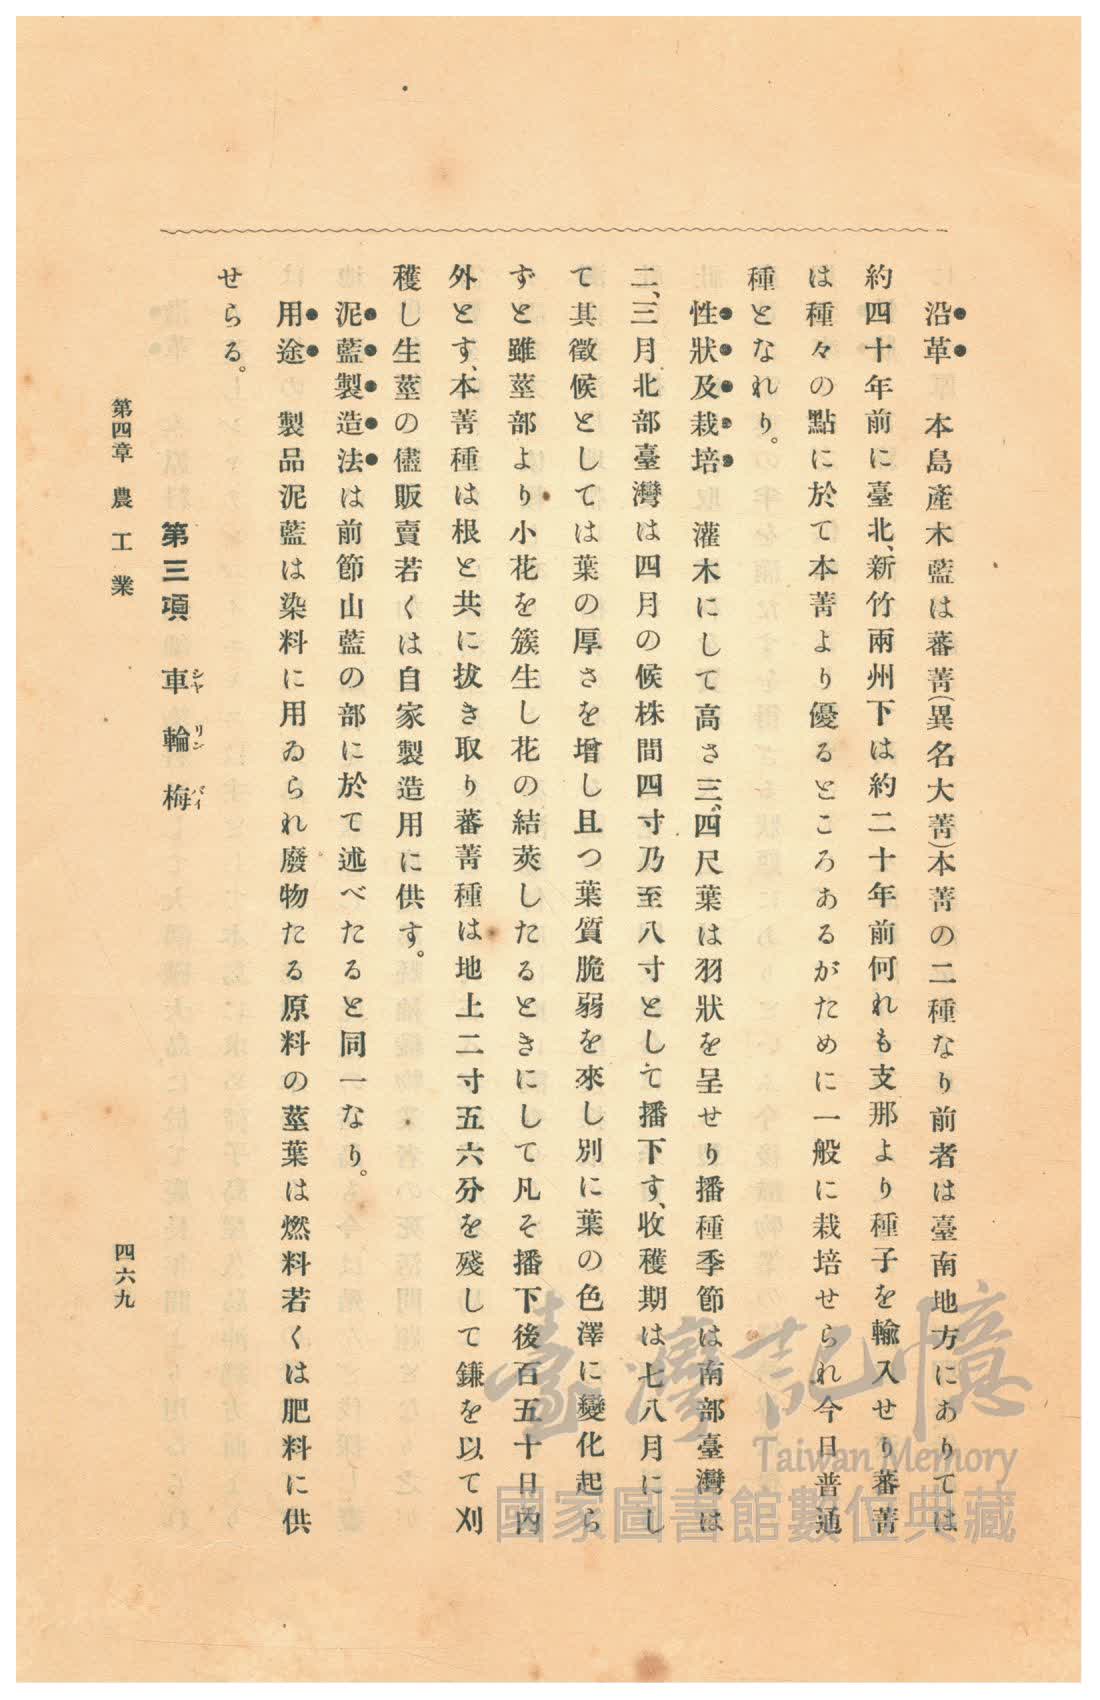 沿革　本島產木藍は蕃菁(異名大菁)本菁の二種なり前者は臺南地方にありては
約四十年前に臺北、新竹兩州下は約二十年前何れも支那より種子を輸入せり蕃菁
は種々の點に於て本菁より優るところあるがために一般に栽培せられ今日普通
種となれり。
性狀及栽培　灌木にして高さ三、四尺葉は羽狀を呈せり播種季節は南部臺灣は
二、三月北部臺灣は四月の候株間四寸乃至八寸として播下す、收穫期は七八月にし
て其徵候としては葉の厚さを增し且つ葉質脆弱を來し別に葉の色澤に變化起ら
ずと雖莖部より小花を簇生し花の結莢したるときにして凡そ播下後百五十日內
外とす、本菁種は根と共に拔き取り蕃菁種は地上二寸五六分を殘して鎌を以て刈
穫し生莖の儘販賣若くは自家製造用に供す。
泥藍製造法は前節山藍の部に於て述べたると同一なり。
用途　製品泥藍は染料に用ゐられ廢物たる原料の莖葉は燃料若くは肥料に供
せらる。
第三項　車輪梅
シヤ　リン　バイ
第四章　農工業　四六九
臺灣記憶
Taiwan Memory
國家圖書館數位典藏